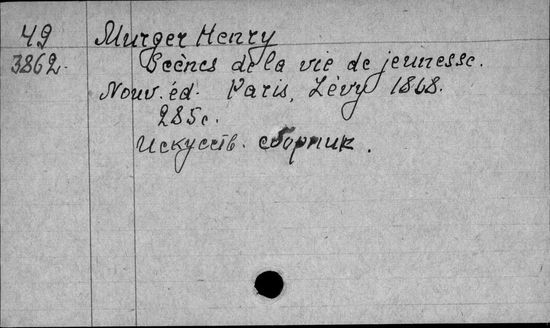 49
3862.
Murger Henry
Scènes de la vie de jeunesse.
Nouv. éd. Paris, Lévy 1868.
285 с.
Искусств. сборник.